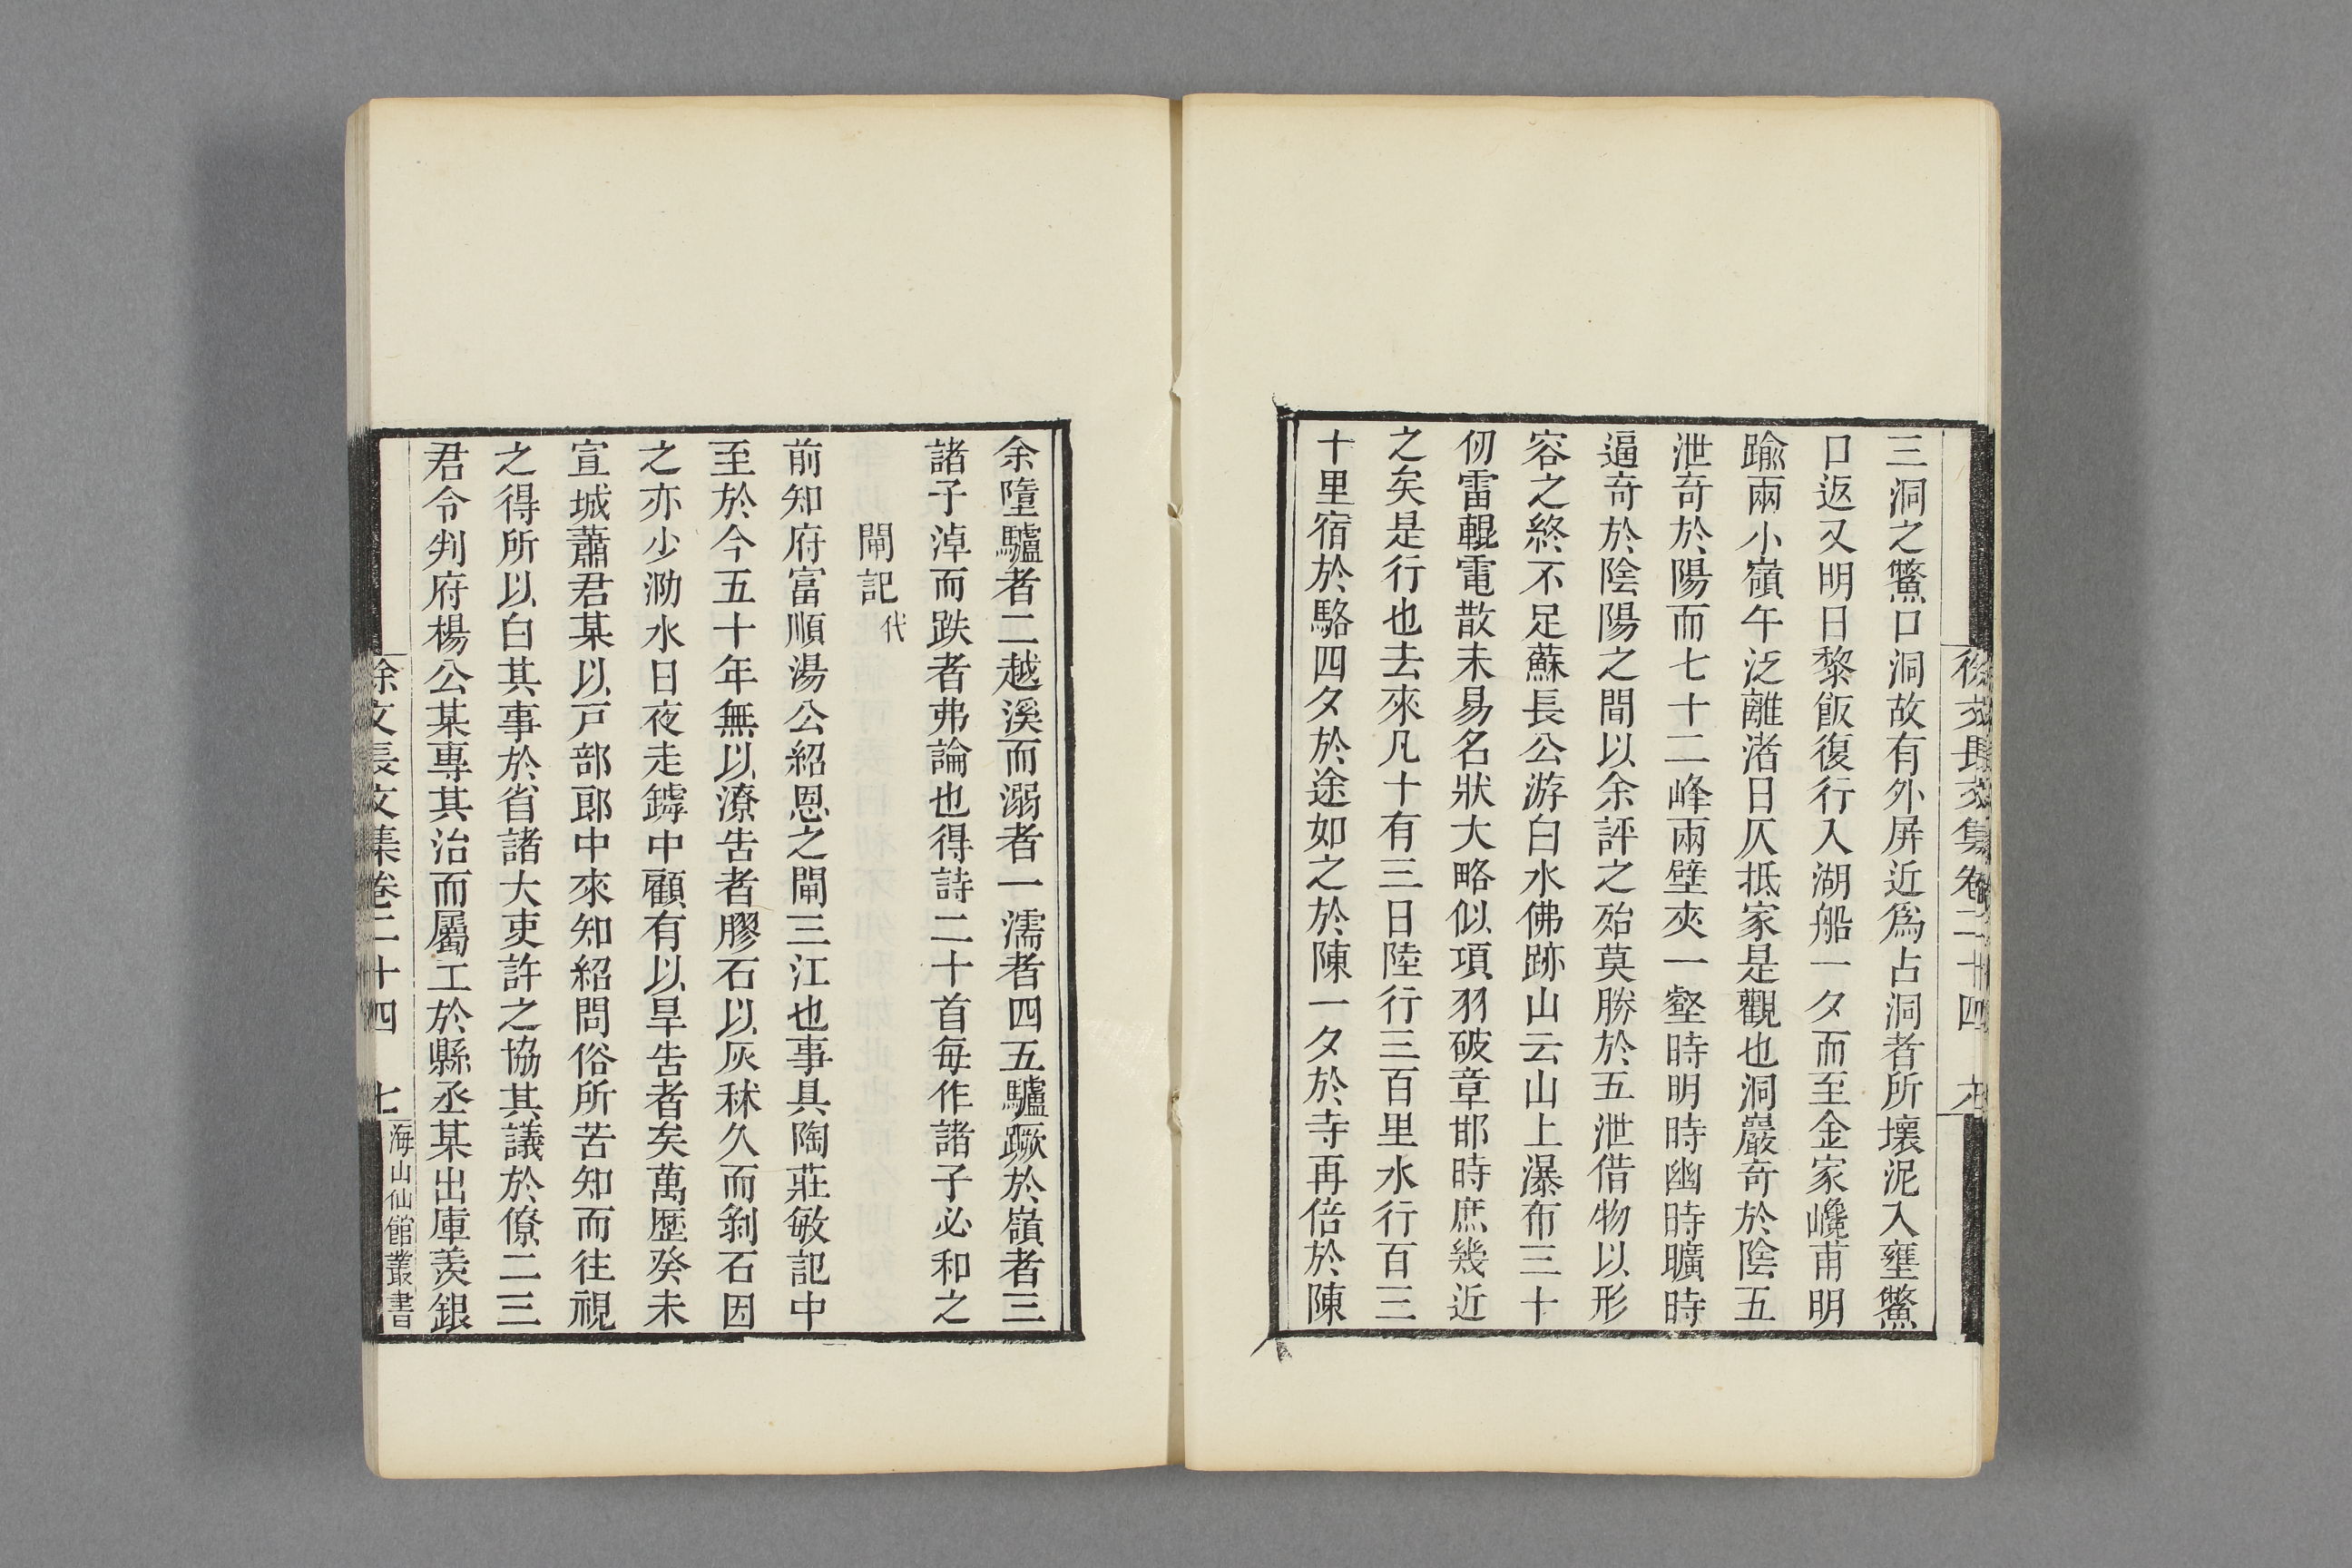 三洞之鱉口洞故有外屏近爲占洞者所壞泥入壅鱉
口返又明日黎飯復行入湖船一夕而至金家巉甫明
踰兩小嶺午泛離渚日仄抵家是觀也洞巖奇於陰五
泄奇於陽而七十二峰兩壁夾一壑時明時幽時曠時
逼奇於陰陽之間以余評之殆莫勝於五泄借物以形
容之終不足蘇長公游白水佛跡山云山上瀑布三十
仞雷輥電散未易名狀大略似項羽破章邯時庶幾近
之矣是行也去來凡十有三日陸行三百里水行百三
十里宿於駱四夕於途如之於陳一夕於寺再倍於陳
余墮驢者二越溪而溺者一濡者四五驢蹶於嶺者三
諸子淖而跌者弗論也得詩二十首每作諸子必和之
閘記代
前知府富順湯公紹恩之閘三江也事具陶莊敏記中
至於今五十年無以潦告者膠石以灰秫久而剝石因
之亦少泐水日夜走鏬中顧有以旱告者矣萬歷癸未
宣城蕭君某以戸部郎中來知紹問俗所苦知而往視
之得所以白其事於省諸大吏許之協其議於僚二三
君令判府楊公某專其治而屬工於縣丞某出庫羨銀
徐文長文集卷二十四 七
海山仙館叢書